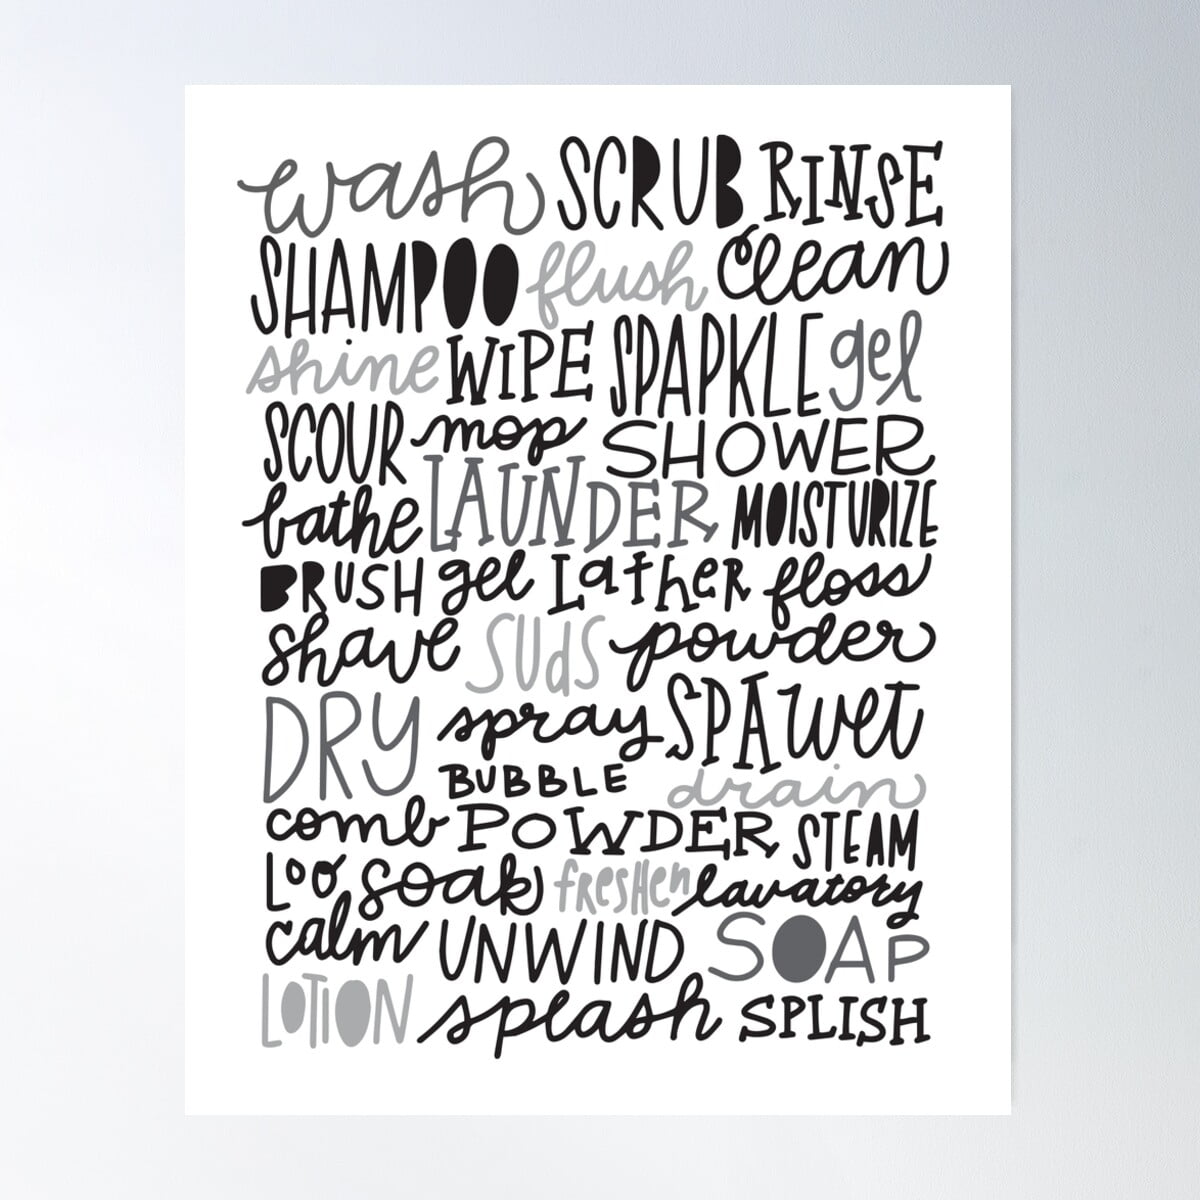 wash SCRUB RINSE
SHAMPOO flush clean
shine WIPE SPAPKLE gel
SCOUR mop SHOWER
bathe LAUNDER MOISTURIZE
BRUSH gel LatheR floss
shave SUdS powder
DRY spray SPA wet
BUBBLE drain
comb POWDER STEAM
Loo soak fResHen lavatory
calm UNWIND SOAP
LOTION splash SPLISH